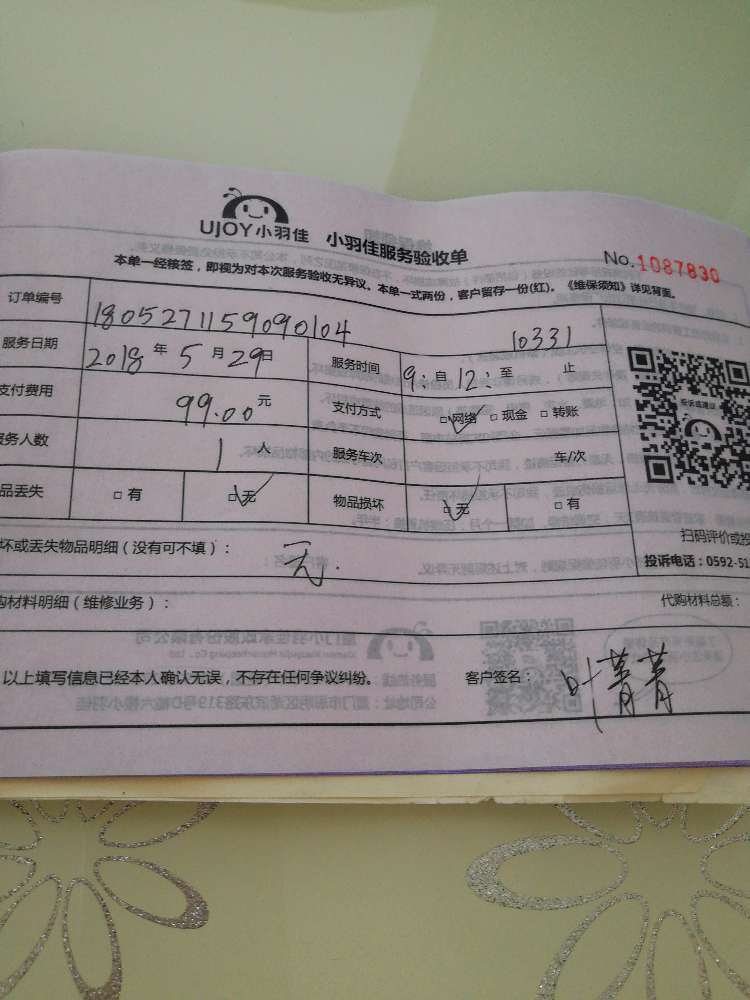 UJOY小羽佳 小羽佳服务验收单
No.1087830
本单一经核签，即视为对本次服务验收无异议。本单一式两份，客户留存一份(红)。《维保须知》详见背面。
订单编号 1805271159090104 10331
服务日期 2018年5月29日 服务时间 9:自12:至 止
支付费用 99.00元 支付方式 □网络 □现金 □转账
服务人数 1人 服务车次 车/次
品丢失 □有 □无 物品损坏 □无 □有
投诉或建议
扫码评价或投
坏或丢失物品明细（没有可不填）： 无.
投诉电话：0592-51
购材料明细（维修业务）： 代购材料总额：
以上填写信息已经本人确认无误，不存在任何争议纠纷。 客户签名： 叶菁菁